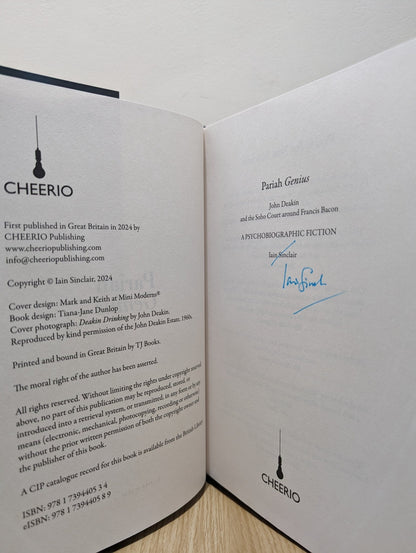 CHEERIO
First published in Great Britain in 2024 by
CHEERIO Publishing
www.cheeriopublishing.com
info@cheeriopublishing.com
Copyright © Iain Sinclair, 2024
Cover design: Mark and Keith at Mini Moderns®
Book design: Tiana-Jane Dunlop
Cover photograph: Deakin Drinking by John Deakin, 1960s.
Reproduced by kind permission of the John Deakin Estate.
Printed and bound in Great Britain by TJ Books.
The moral right of the author has been asserted.
All rights reserved. Without limiting the rights under copyright reserved
above, no part of this publication may be reproduced, stored or
introduced into a retrieval system, or transmitted, in any form or by any
means (electronic, mechanical, photocopying, recording or otherwise)
without the prior written permission of both the copyright owner and
the publisher of this book.
A CIP catalogue record for this book is available from the British Library
ISBN: 978 1 7394405 3 4
eISBN: 978 1 7394405 8 9
Pariah Genius
John Deakin
and the Soho Court around Francis Bacon
A PSYCHOBIOGRAPHIC FICTION
Iain Sinclair
CHEERIO